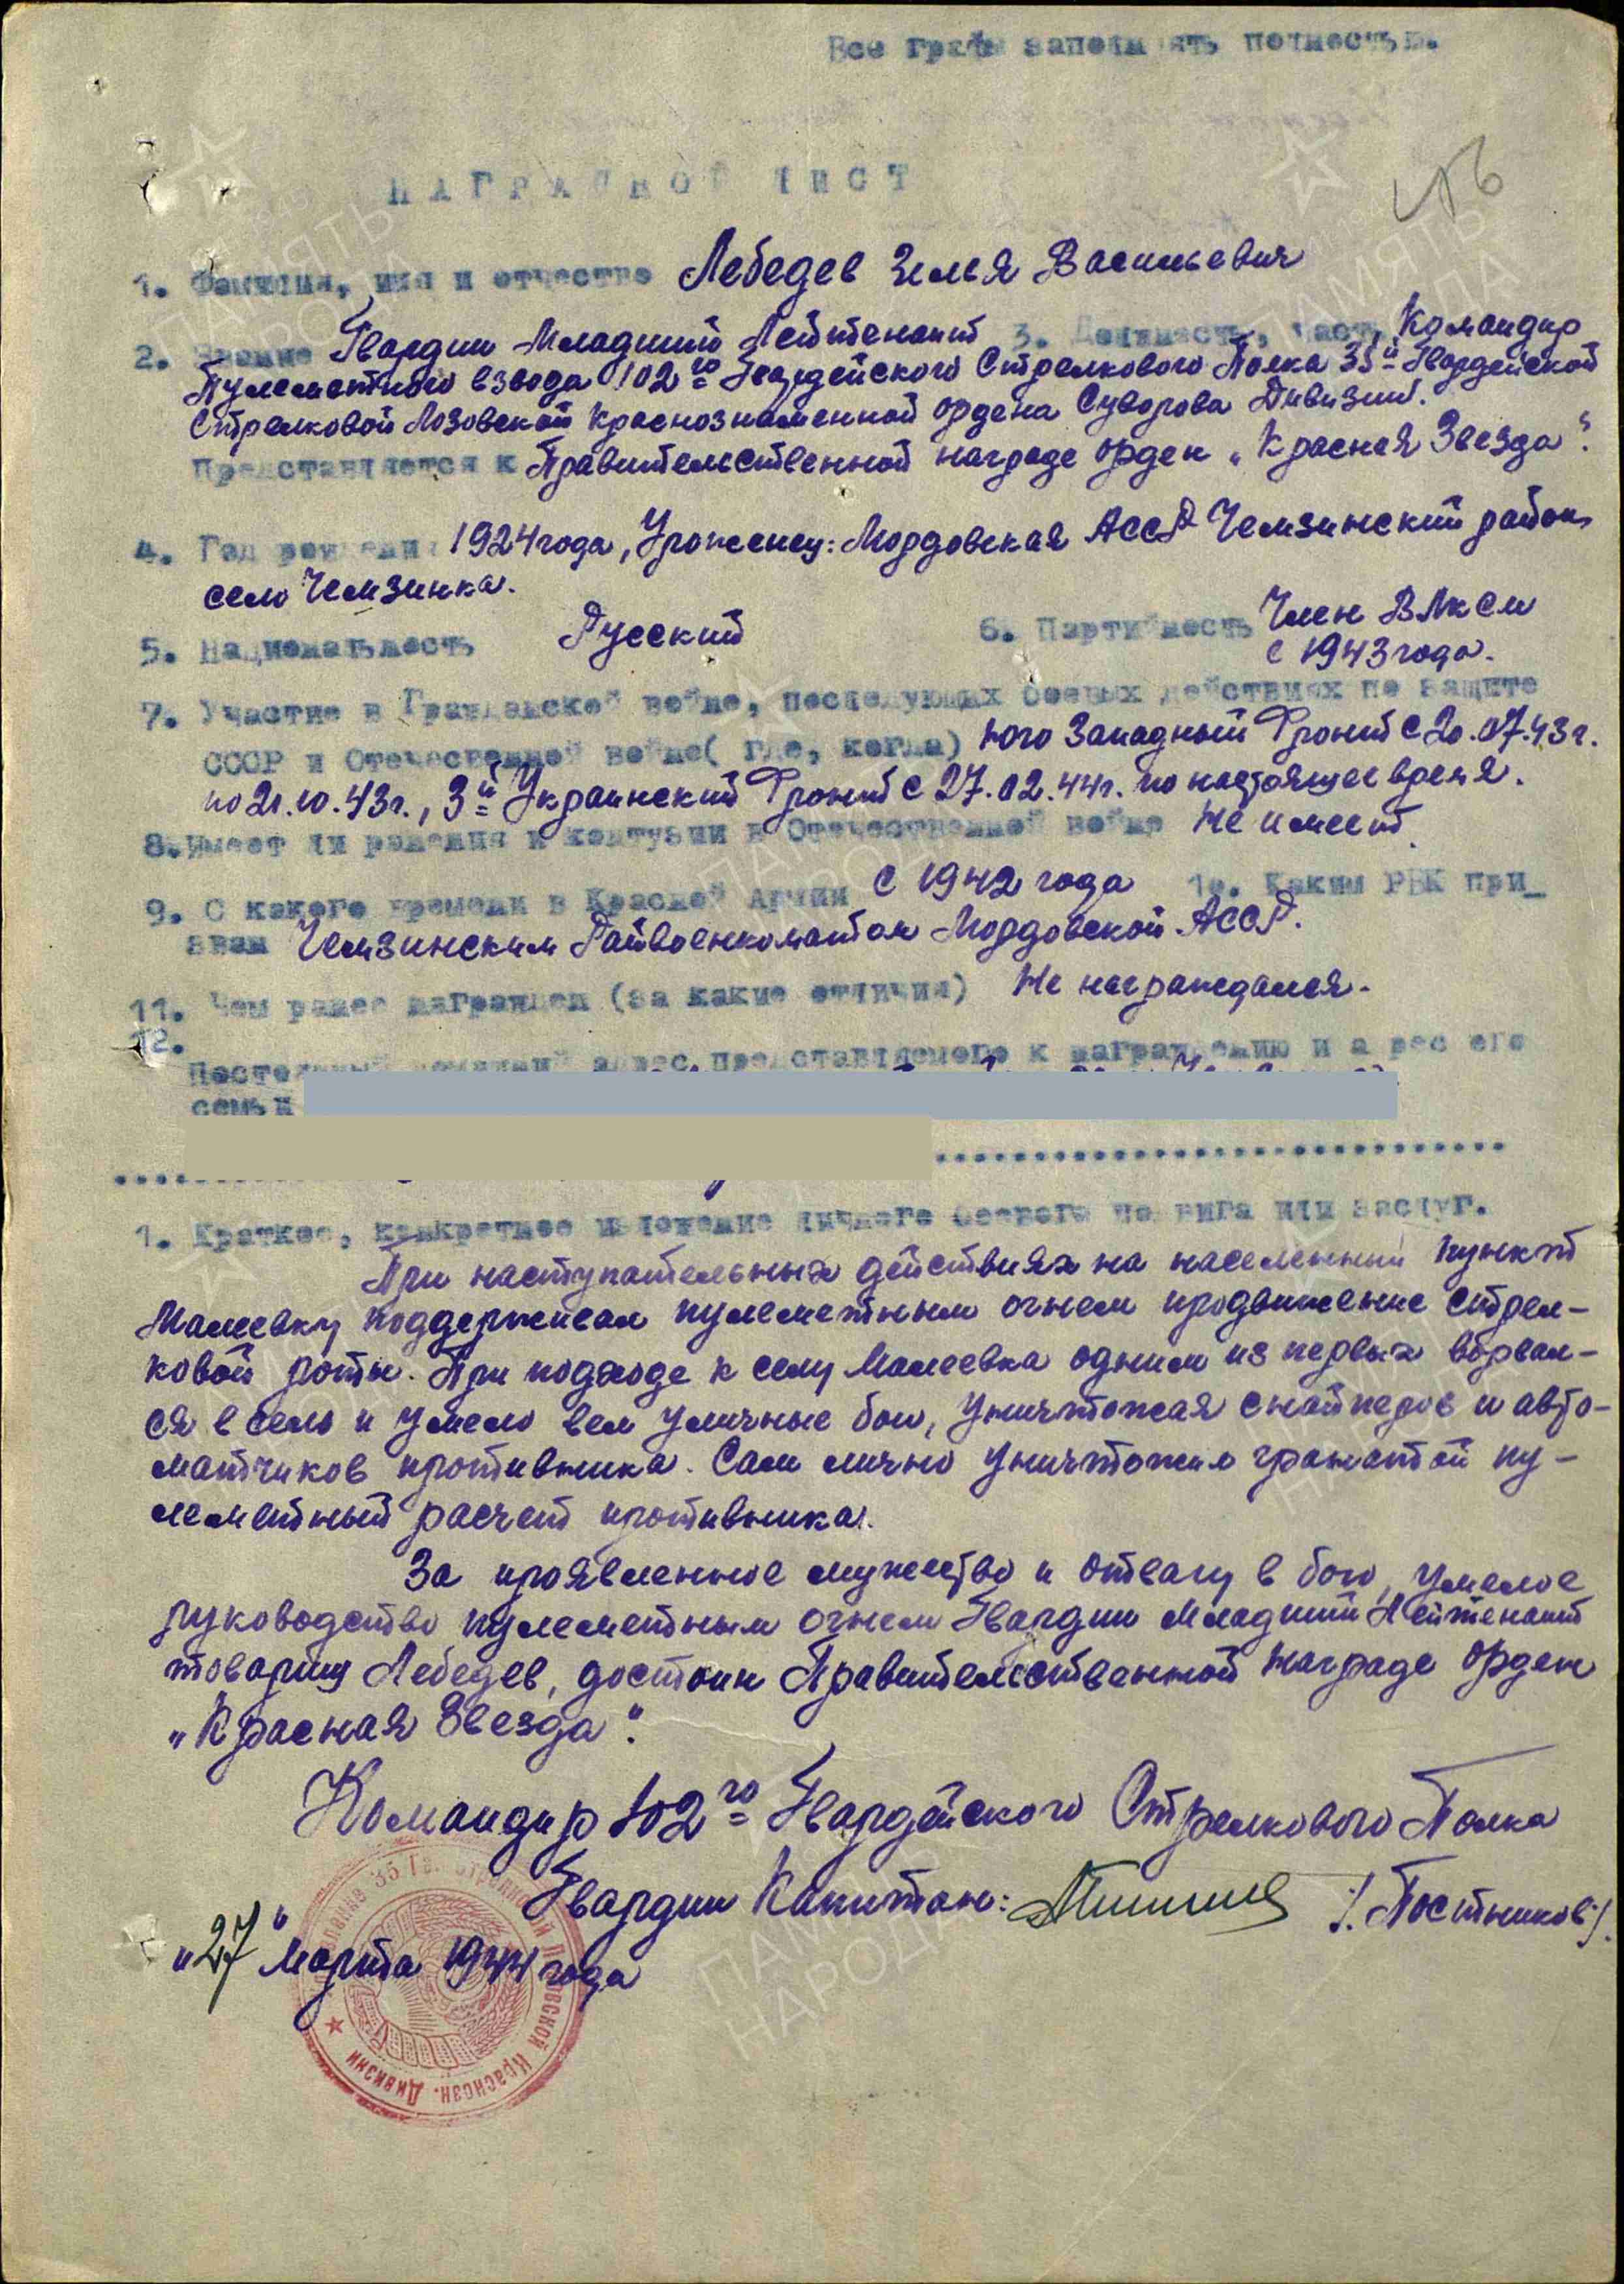 Все графы заполнять полностью.
НАГРАДНОЙ ЛИСТ
1. Фамилия, имя и отчество Лебедев Илья Васильевич
2. Звание Гвардии Младший Лейтенант 3. Должность, часть Командир
Пулеметного взвода 102го Гвардейского Стрелкового Полка 35й Гвардейской
Стрелковой Лозовской Краснознаменной ордена Суворова Дивизии.
Представляется к Правительственной награде орден „Красная Звезда".
4. Год рождения 1924 года, Уроженец: Мордовская АССР Чемзинский район,
село Чемзинка.
5. Национальность Русский 6. Партийность Член ВЛКСМ
с 1943 года.
7. Участие в Гражданской войне, последующих боевых действиях по защите
СССР и Отечественной войне( где, когда) Юго Западный Фронт с 20.07.43г.
по 21.10.43г., 3й Украинский Фронт с 27.02.44г. по настоящее время.
8. Имеет ли ранения и контузии в Отечественной войне Не имеет.
9. С какого времени в Красной Армии с 1942 года 10. Каким РВК при_
зван Чемзинским Райвоенкоматом Мордовской АССР.
11. Чем ранее награжден (за какие отличия) Не награждался.
12.
Постоянный домашний адрес представляемого к награждению и адрес его
семьи
1. Краткое, конкретное изложение личного боевого подвига или заслуг.
При наступательных действиях на населенный пункт
Малеевку поддерживал пулеметным огнем продвижение стрел-
ковой роты. При подходе к селу Малеевка одним из первых ворвал-
ся в село и умело вел уличные бои, уничтожая снайперов и авто-
матчиков противника. Сам лично уничтожил гранатой пу-
леметный расчет противника.
За проявленное мужество и отвагу в бою, умелое
руководство пулеметным огнем Гвардии Младший Лейтенант
товарищ Лебедев, достоин Правительственной награде орден
„Красная Звезда".
Командир 102го Гвардейского Стрелкового Полка
Гвардии Капитан: /:Постников:/.
„27" Марта 1944 года
35 Гв. Стрелковой Лозовской Краснозн. Дивизии
ПАМЯТЬ НАРОДА